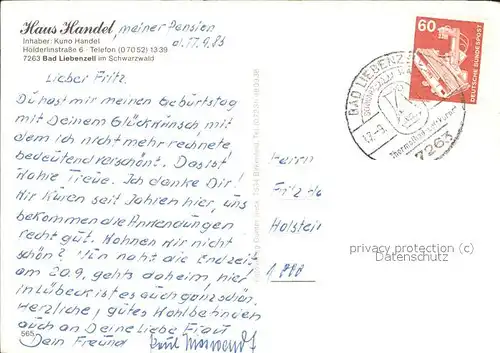 Haus Handel meiner Pension
Inhaber: Kuno Handel d. 17.9.83
Hölderlinstraße 6 · Telefon (07052) 1339
7263 Bad Liebenzell im Schwarzwald
Lieber Fritz.
Du hast mir meinen Geburtstag
mit Deinem Glückwunsch mit
dem ich nicht mehr rechnete
bedeutend verschönt. Das ist
Hohe Treue. Ich danke Dir!
Wir Kuren seit Jahren hier, uns
bekommen die Anwendungen
recht gut. Wohnen wir nicht
schön? Nun naht die Endzeit
am 20.9. gehts daheim, hier
in Lübeck ist es auch ganz schön.
Herzliche, gutes Wohlbefinden
auch an Deine Liebe Frau
Dein Freund Paul
565
Herrn
Fritz
Holstein
60
DEUTSCHE BUNDESPOST
BAD LIEBENZELL
17.-9.
Thermalbad
7263
privacy protection (c)
Datenschutz (c)